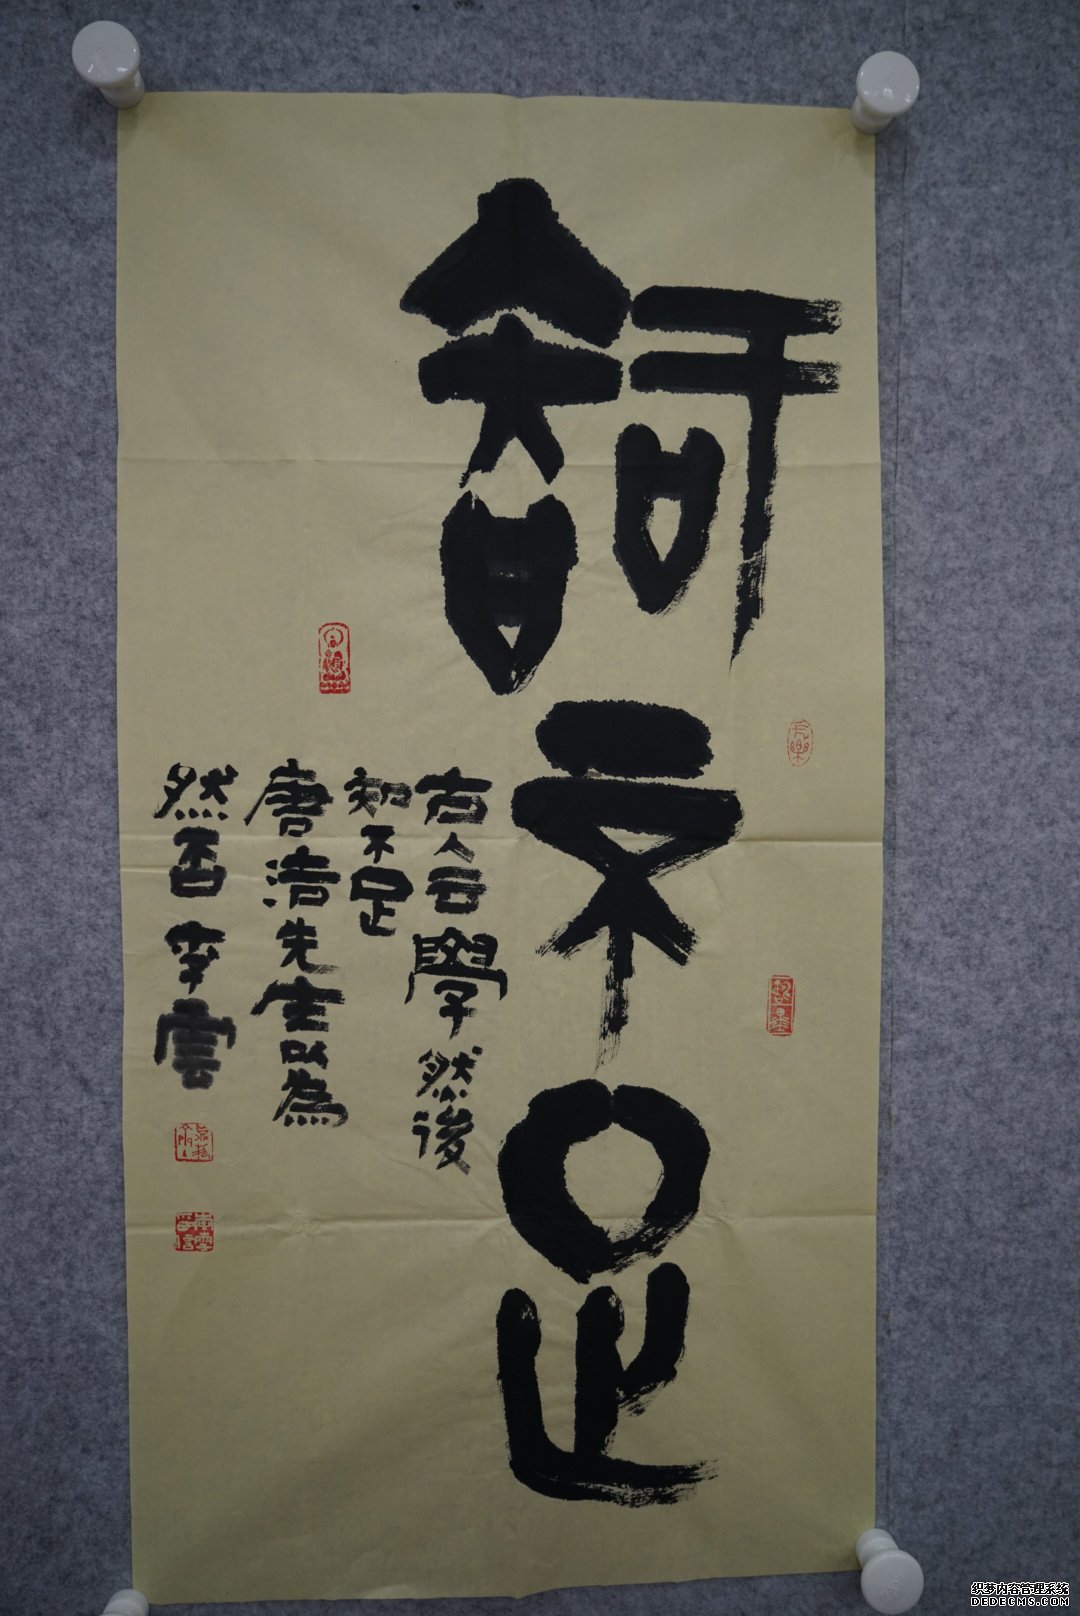 智不足
古人云學然後
知不足
唐浩先生以為
然否李雲
长樂
织梦内容管理系统
DEDECMS.COM